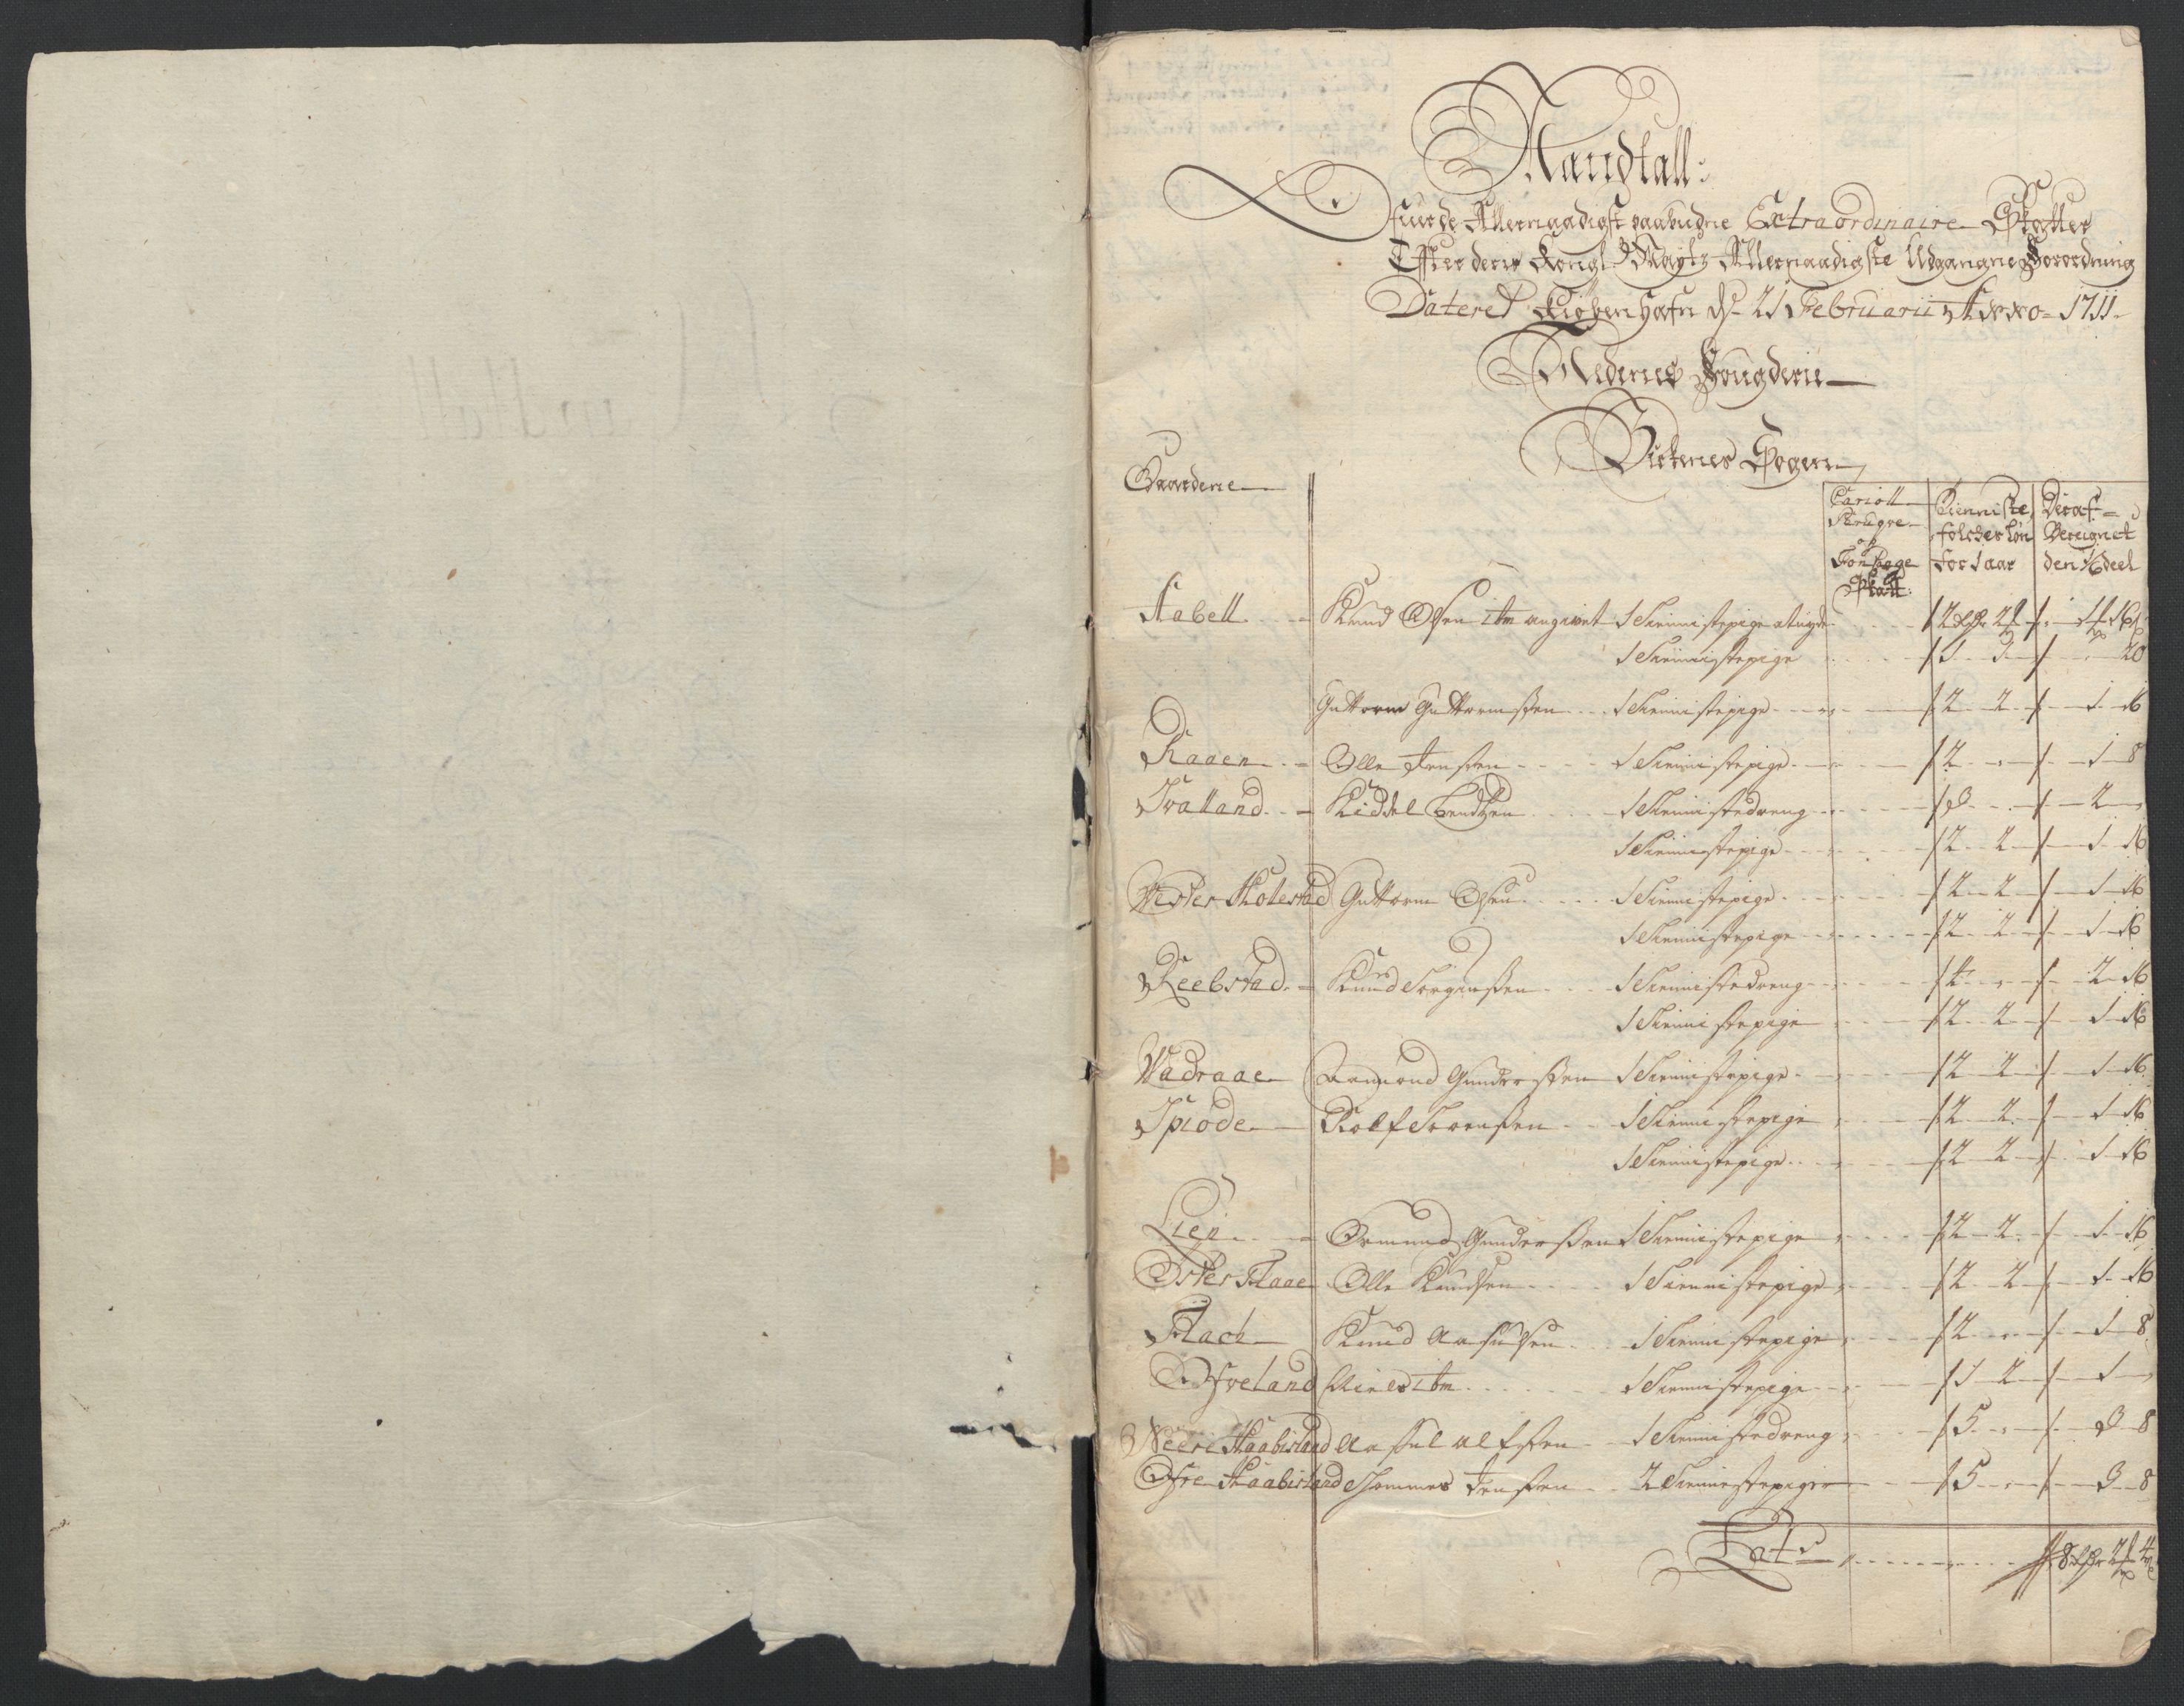 Mandtall
Over de Allernaadigst paabudne Extraordinaire Skatter
Efter deris Kongl: Mayts Allernaadigste Udgangne Forordning
Dateret Kiøbenhafn d 21 Februarii Anno 1711
Nedenes Fougderie
Birkenes Sogen
Gaardene
Cariol
Peruqve
og
Fontage
Skatt
Tienniste
folches løn
for 1 aar
Deraf
Bereignet
den 1/6 deel
Aabell Knud Olsen itm angivet 1 Tiennistepige at nyde 2 rdr 2 1 16
1 Tiennistepige 1 3 20
Guttorm Guttormsen 1 Tiennistepige 2 2 1 16
Raaen Olle Jensen 1 Tiennistepige 2 1 8
Tvalland Kiddel Bendtzen 1 Tiennistedreng 3 2
1 Tiennistepige 2 2 1 16
Vester Guttorm Olsen 1 Tiennistepige 2 2 1 16
1 Tiennistepige 2 2 1 16
Reebstad Knud Torgiusen 1 Tiennistedreng 4 2 16
1 Tiennistepige 2 2 1 16
Vadraae Aamund Gundersen 1 Tiennistepige 2 2 1 16
Tpiode Rolf Torensen 1 Tiennistepige 2 2 1 16
1 Tiennistepige 2 2 1 16
Lien Ormund Gundersen 1 Tiennistepige 2 2 1 16
Øster Flaae Olle Knudsen 1 Tiennistepige 2 2 1 16
Flach Knud Aasulsen 1 Tiennistepige 2 1 8
Niels itm 1 Tiennistepige 1 2 1
Neere Haabisland Aasul Alfsen 1 Tiennistedreng 5 3 8
Øfre Haabisland Thommes Jensen 2 Tiennistepiger 5 3 8
Lat 8 rdr 2 4